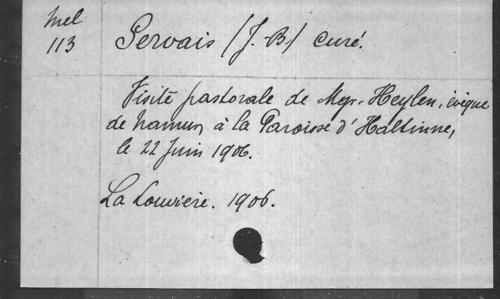 Mel
113
Gervais (J.-B.) curé.
Visite pastorale de Mgr. Heylen, évêque
de Namur, à la Paroisse d'Haltinne,
le 22 Juin 1906.
La Louvière. 1906.